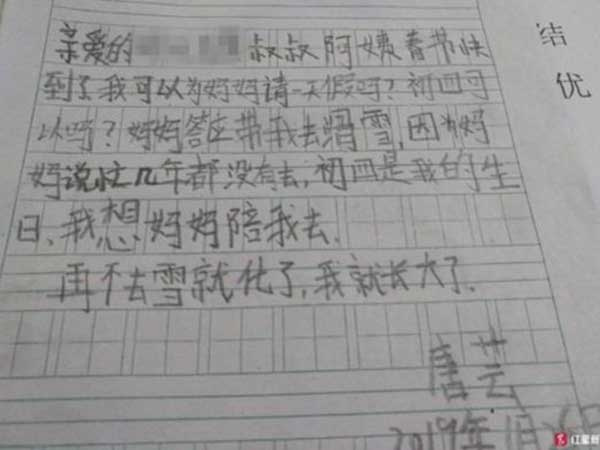 亲爱的 叔叔阿姨春节快
到了我可以为妈妈请一天假吗?初四可
以吗?妈妈答应带我去滑雪,因为妈
妈说忙几年都没有去,初四是我的生
日、我想妈妈陪我去.
再不去雪就化了,我就长大了.
唐芸
2019年1月26日
结
优
红星新